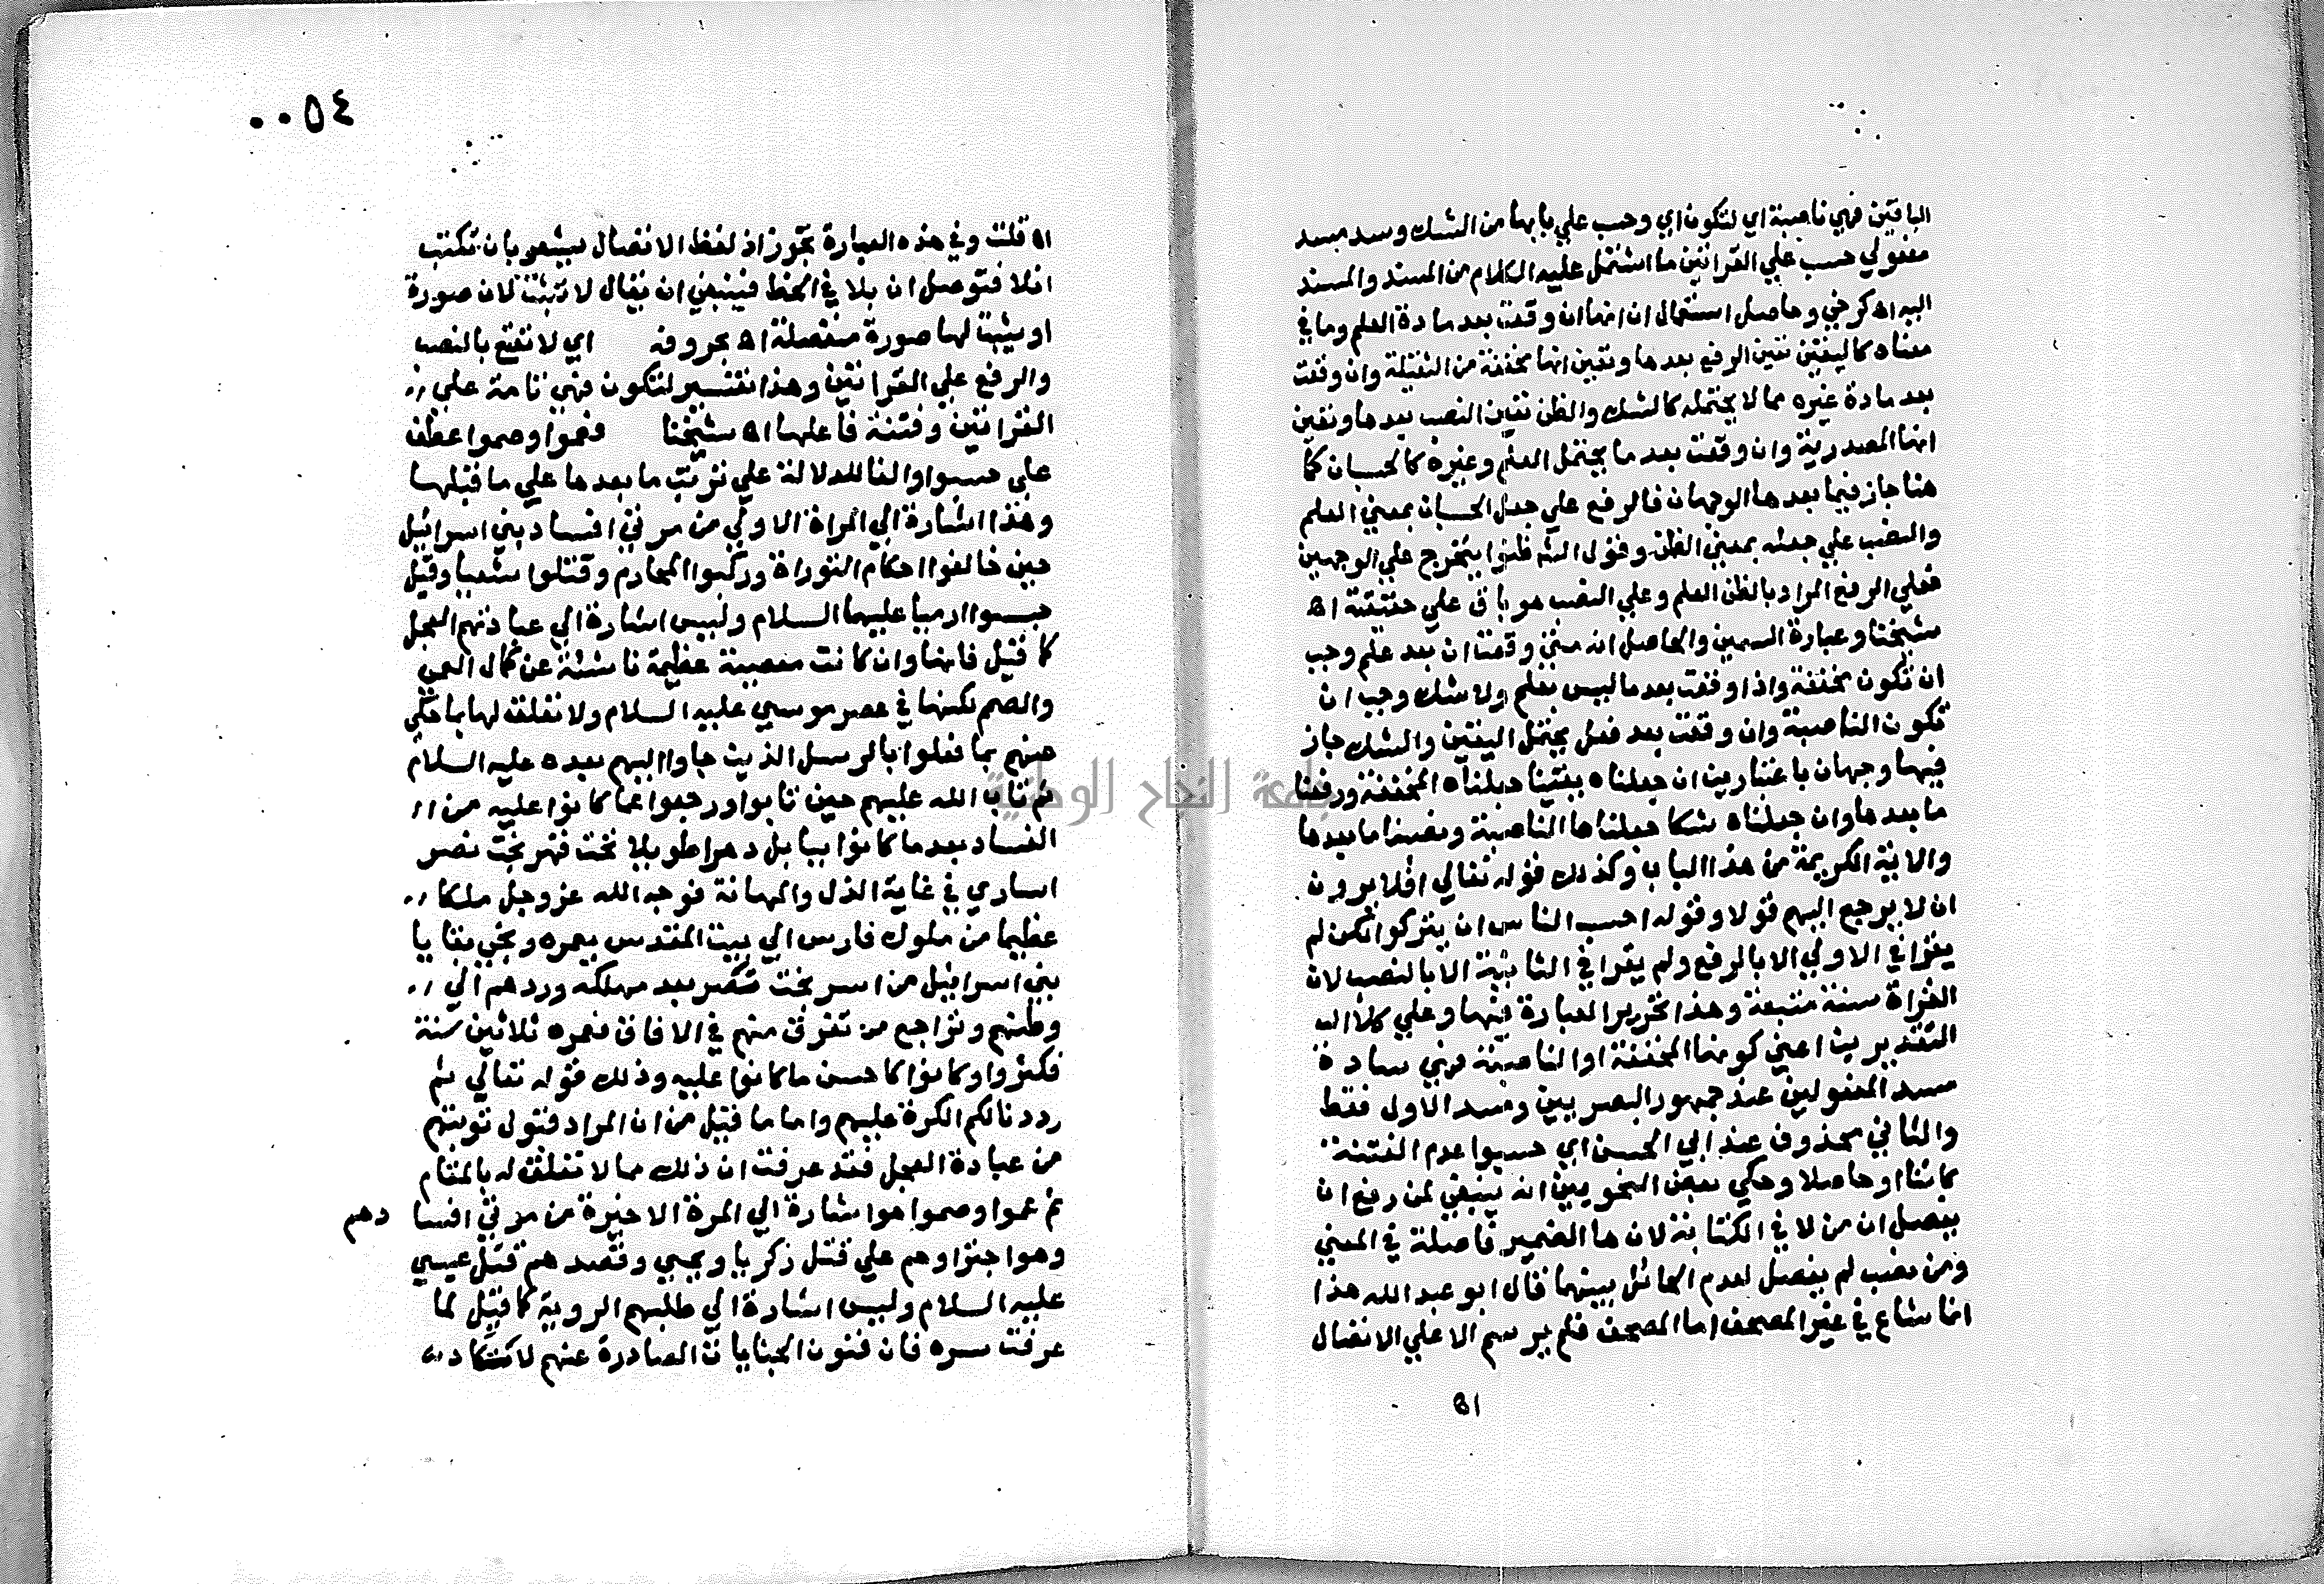 الباقين فهي ناصبة اي لتكون اي وحسب علي بابها من الشك وسد مسد
مفعولي حسب علي القرائتين ما اشتمل عليه الكلام من المسند والمسند
اليه اه كرخي وحاصل استعمال ان انها ان وقعت بعد مادة العلم وما في
معناه كاليقين تعين الرفع بعدها وتعين انها مخففة من الثقيلة وان وقعت
بعد مادة غيره مما لا يحتمله كالشك والظن تعين النصب بعدها وتعين
انها المصدرية وان وقعت بعد ما يحتمل العلم وغيره كالحسبان كما
هنا جاز فيما بعدها الوجهان فالرفع علي جعل الحسبان بمعني العلم
والنصب علي جعله بمعني الظن وقول الشه ظنوا يتخرج علي الوجهين
فعلي الرفع المراد بالظن العلم وعلي النصب هو باق علي حقيقته اه
شيخنا وعبارة السمين والحاصل انه متي وقعت ان بعد علم وجب
ان تكون مخففة واذا وقعت بعد ما ليس بعلم ولا شك وجب ان
تكون الناصبة وان وقعت بعد فعل يحتمل اليقين والشك جاز
فيها وجهان باعتبارين ان جعلناه يقينا جعلناه المخففة ورفعنا
ما بعدها وان جعلناه شكا جعلناها الناصبة ونصبنا ما بعدها
والاية الكريمة من هذا الباب وكذلك قوله تعالي افلا يرون
ان لا يرجع اليهم قولا وقوله احسب الناس ان يتركوا لكن لم
يقرا في الاولي الا بالرفع ولم يقرا في الثانية الا بالنصب لان
القراة سنة متبعة وهذا تحرير العبارة فيها وعلي كلا
التقديرين اعني كونها المخففة او الناصبة فهي سادة
مسد المفعولين عند جمهور البصريين ومسد الاول فقط
والثاني محذوف عند ابي الحسن اي حسبوا عدم الفتنة
كائنا او حاصلا وحكي بعض النحويين انه ينبغي لمن رفع ان
يفصل ان من لا في الكتابة لان ها الضمير فاصلة في المعني
ومن نصب لم يفصل لعدم الحائل بينهما قال ابو عبد الله هذا
انما شاع في غير المصحف اما المصحف فلم يرسم الا علي الاتصال
اه
٠٠٥٤
اه قلت وفي هذه العبارة تجوز اذ لفظ الاتصال يشعر بان تكتب
انلا فتوصل ان بلا في الخط فينبغي ان يقال لا تثبت لان صورة
او يثبت لها صورة منفصلة اه بحروفه اي لا تقع بالنصب
والرفع علي القرائتين وهذا تفسير لتكون فهي تامة علي
القرائتين وفتنة فاعلها اه شيخنا فعموا وصموا عطف
علي حسبوا والفا للدلالة علي ترتب ما بعدها علي ما قبلها
وهذا اشارة الي المراة الاولي من مرتي افساد بني اسرائيل
حين خالفوا احكام التوراة وركبوا المحارم وقتلوا شعيا وقيل
حبسوا ارميا عليهما السلام وليس اشارة الي عبادتهم العجل
كما قيل فانها وان كانت معصية عظيمة ناشئة عن كمال العمي
والصمم لكنها في عصر موسي عليه السلام ولا تعلق لها بما حكي
عنهم بما فعلوا بالرسل الذين جاوا اليهم بعده عليه السلام
ثم تاب الله عليهم حين تابوا ورجعوا عما كانوا عليه من
الفساد بعد ما كانوا ببابل دهرا طويلا تحت قهر بخت نصر
اساري في غاية الذل والمهانة فوجه الله عز وجل ملكا
عظيما من ملوك فارس الي بيت المقدس يعمره ونجي بقايا
بني اسرائيل من اسر بخت نصر بعد مهلكه وردهم الي
وطنهم وتراجع من تفرق منهم في الافاق فعمره ثلاثين سنة
فكثروا وكانوا كاحسن ما كانوا عليه وذلك قوله تعالي ثم
رددنا لكم الكرة عليهم واما ما قيل من ان المراد قبول توبتهم
من عبادة العجل فقد عرفت ان ذلك مما لا تعلق له بالمقام
ثم عموا وصموا هو اشارة الي المرة الاخيرة من مرتي افسا دهم
وهو اجتراوهم علي قتل زكريا ويحيي وقصدهم قتل عيسي
عليه السلام وليس اشارة الي طلبهم الروية كما قيل لما
عرفت سره فان فنون الجنايات الصادرة عنهم لا تكاد
جامعة النجاح الوطنية